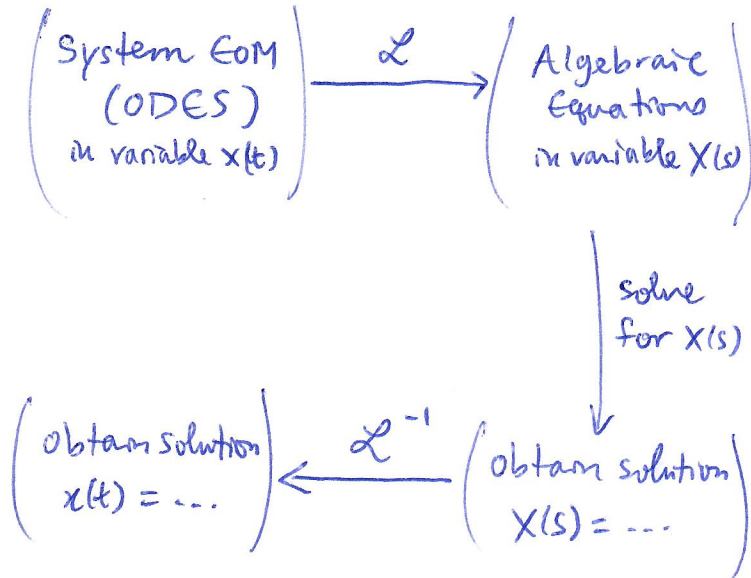 System EoM
(ODES)
in variable x(t)
ℒ
Algebraic
Equations
in variable X(s)
solve
for X(s)
obtain solution
X(s) = ....
ℒ⁻¹
obtain solution
x(t) = ....